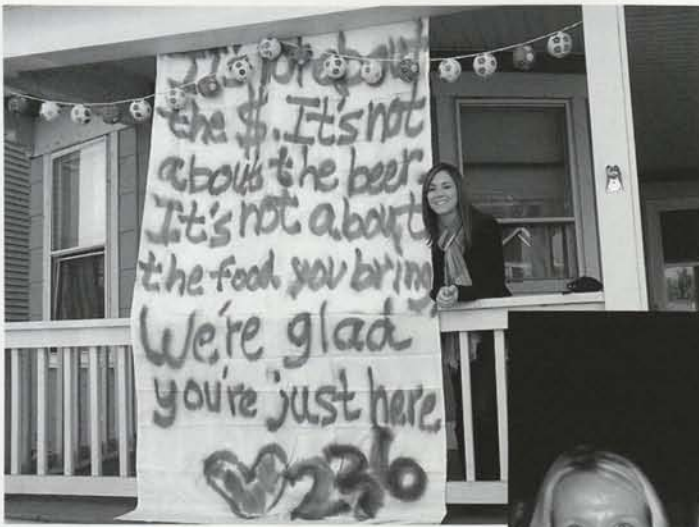 It's not about
the $. It's not
about the beer.
It's not about
the food you bring
We're glad
you're just here
236